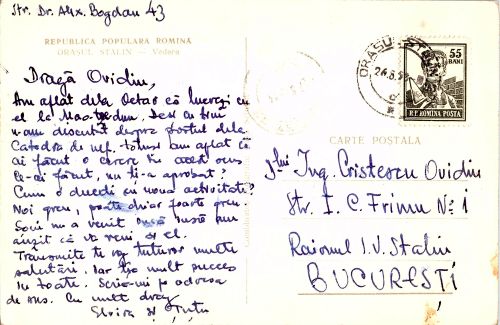 Str. Dr. Alex. Bogdan 43
REPUBLICA POPULARA ROMINA
ORAȘUL STALIN — Vedere
Dragă Ovidiu,
Am aflat dela Octav că lucrezi cu
el la Mao-țe-dun. Deși cu tine
n-am discutat despre postul dela
Catedra de totuși am aflat că
ai făcut o cerere în acest sens
Ce-ai făcut, nu ți-a aprobat?
Cum o duceți cu noua activitate?
Noi greu, poate chiar foarte greu.
nu a venit însă
auzit că va veni și el.
Transmite te rog tuturor multe
salutări. Iar ție mult succes
în toate. Scrie-mi pe adresa
de sus. Cu mult drag
Elvira și Țuțu
ORAȘUL STALIN
26.8.5
55
BANI
R.P. ROMINA POSTA
CARTE POȘTALĂ
Ing. Cristescu Ovidiu
Str. I. C. Frimu Nº 1
Raionul I.V. Stalin
BUCUREȘTI